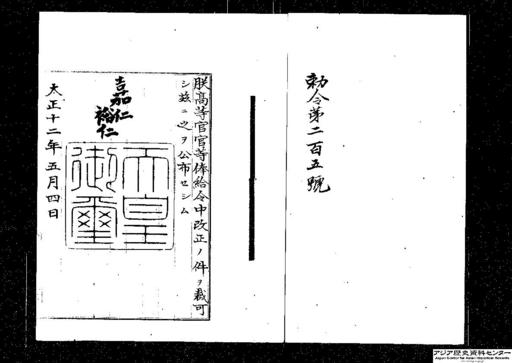 勅令第二百五號
朕高等官官等俸給令中改正ノ件ヲ裁可
シ茲ニ之ヲ公布セシム
嘉仁
裕仁
天皇
御璽
大正十二年五月四日
アジア歴史資料センター
Japan Center for Asian Historical Records